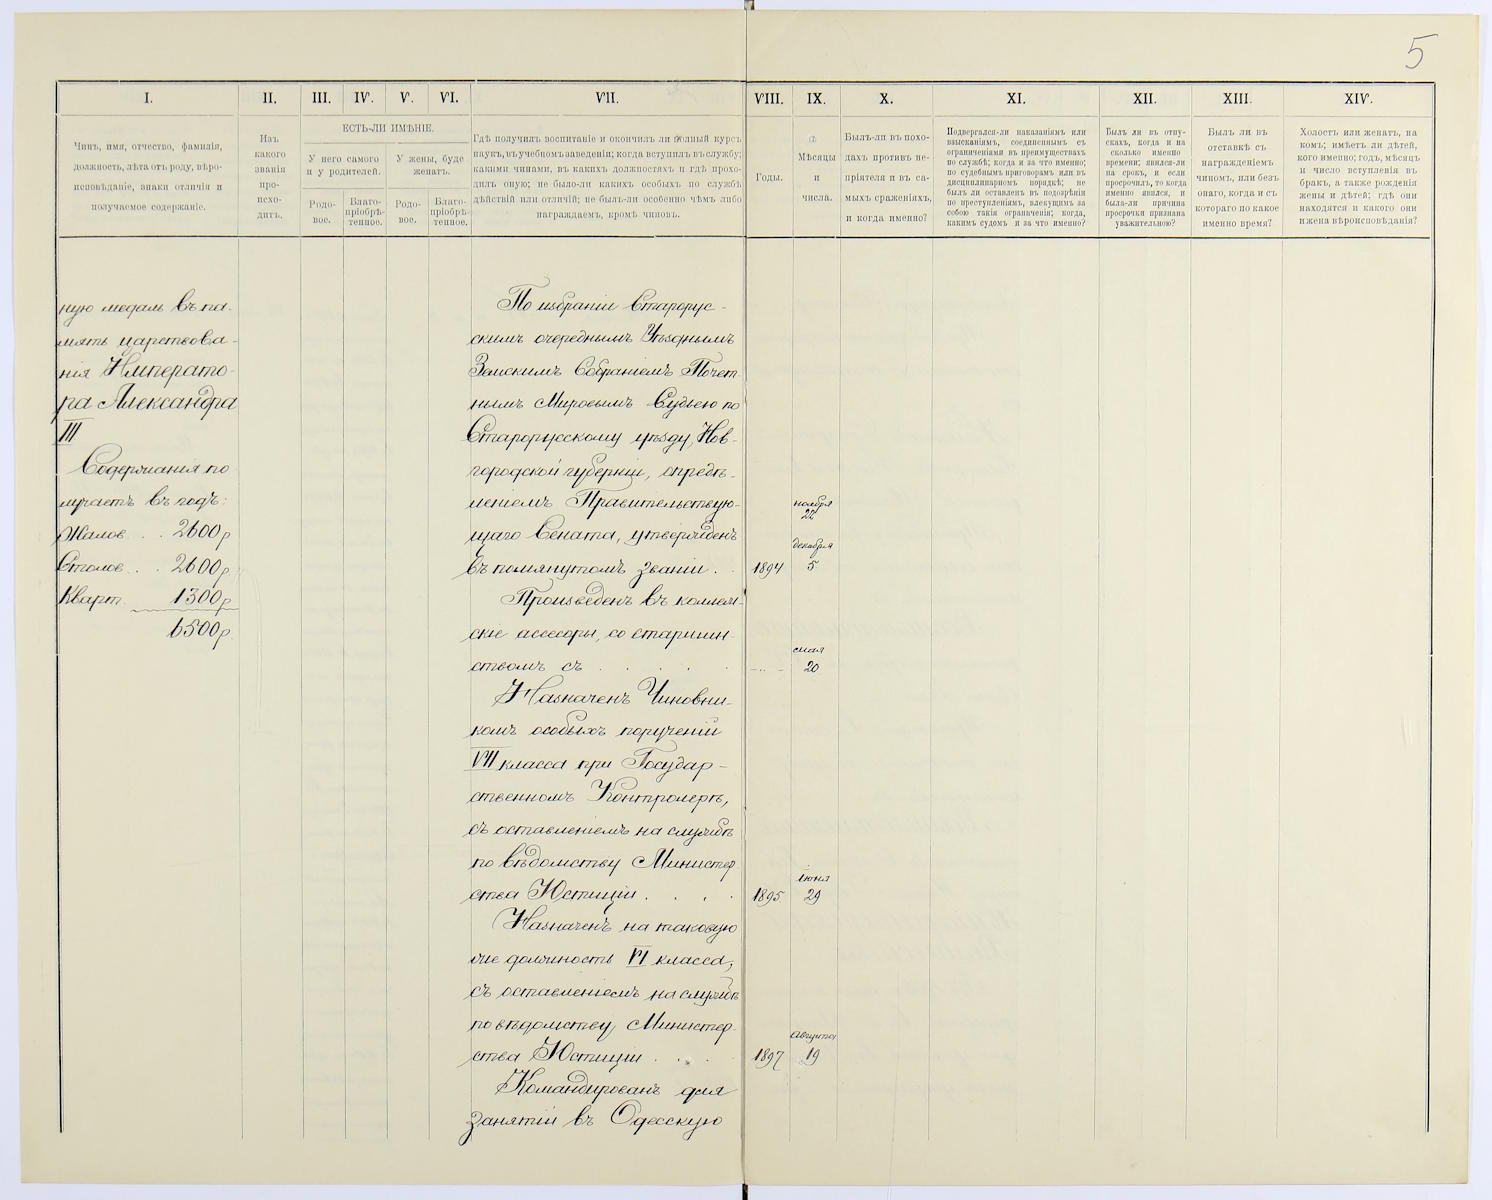 5
I. II. III. IV. V. VI. VII. VIII. IX. X. XI. XII. XIII. XIV.
Чинъ, имя, отчество, фамилія,
должность, лѣта отъ роду, вѣро-
исповѣданіе, знаки отличія и
получаемое содержаніе.
Изъ
какого
званія
про-
исхо-
дитъ.
ЕСТЬ-ЛИ ИМѢНІЕ.
У него самого
и у родителей.
У жены, буде
женатъ.
Родо-
вое.
Благо-
пріобрѣ-
тенное.
Родо-
вое.
Благо-
пріобрѣ-
тенное.
Гдѣ получилъ воспитаніе и окончилъ ли полный курсъ
наукъ, въ учебномъ заведеніи; когда вступилъ въ службу;
какими чинами, въ какихъ должностяхъ и гдѣ прохо-
дилъ оную; не было-ли какихъ особыхъ по службѣ
дѣйствій или отличій; не былъ-ли особенно чѣмъ либо
награждаемъ, кромѣ чиновъ.
Годы.
Мѣсяцы
и
числа.
Былъ-ли въ похо-
дахъ противъ не-
пріятеля и въ са-
мыхъ сраженіяхъ,
и когда именно?
Подвергался-ли наказаніямъ или
взысканіямъ, соединеннымъ съ
ограниченіями въ преимуществахъ
по службѣ; когда и за что именно;
по судебнымъ приговорамъ или въ
дисциплинарномъ порядкѣ; не
былъ ли оставленъ въ подозрѣніи
по преступленіямъ, влекущимъ за
собою такія ограниченія; когда,
какимъ судомъ и за что именно?
Былъ ли въ отпу-
скахъ, когда и на
сколько именно
времени; явился-ли
на срокъ, и если
просрочилъ, то когда
именно явился, и
была-ли причина
просрочки признана
уважительною?
Былъ ли въ
отставкѣ съ
награжденіемъ
чиномъ, или безъ
онаго, когда и съ
котораго по какое
именно время?
Холостъ или женатъ, на
комъ; имѣетъ ли дѣтей,
кого именно; годъ, мѣсяцъ
и число вступленія въ
бракъ, а также рожденія
жены и дѣтей; гдѣ они
находятся и какого они
и жена вѣроисповѣданія?
ную медаль въ па-
мять царствова-
нія Императо-
ра Александра
III
Содержанія по
лучаетъ въ годъ:
Жалов. . . 2600 р
Столов. . . 2600 р.
Кварт. 1300 р
6500 р.
По избраніи Старорус-
скимъ очереднымъ Уѣзднымъ
Земскимъ Собраніемъ Почет-
нымъ Мировымъ Судьею по
Старорусскому уѣзду, Нов-
городской губерніи, опредѣ-
леніемъ Правительствую-
щаго Сената, утвержденъ
въ помянутомъ званіи . .
ноября
22
декабря
1894 5
Произведенъ въ коллеж-
скіе ассесоры, со старшин-
ствомъ съ . . . . .
— " — 20
Назначенъ Чиновни-
комъ особыхъ порученій
VII класса при Государ-
ственномъ Контролерѣ,
съ оставленіемъ на службѣ
по вѣдомству Министер
ства Юстиціи . . . .
іюня
1895 29
Назначенъ на таковую
же должность VI класса,
съ оставленіемъ на службѣ
по вѣдомству Министер-
ства Юстиціи . . . .
августа
1897 19
Командированъ для
занятій въ Одесскую